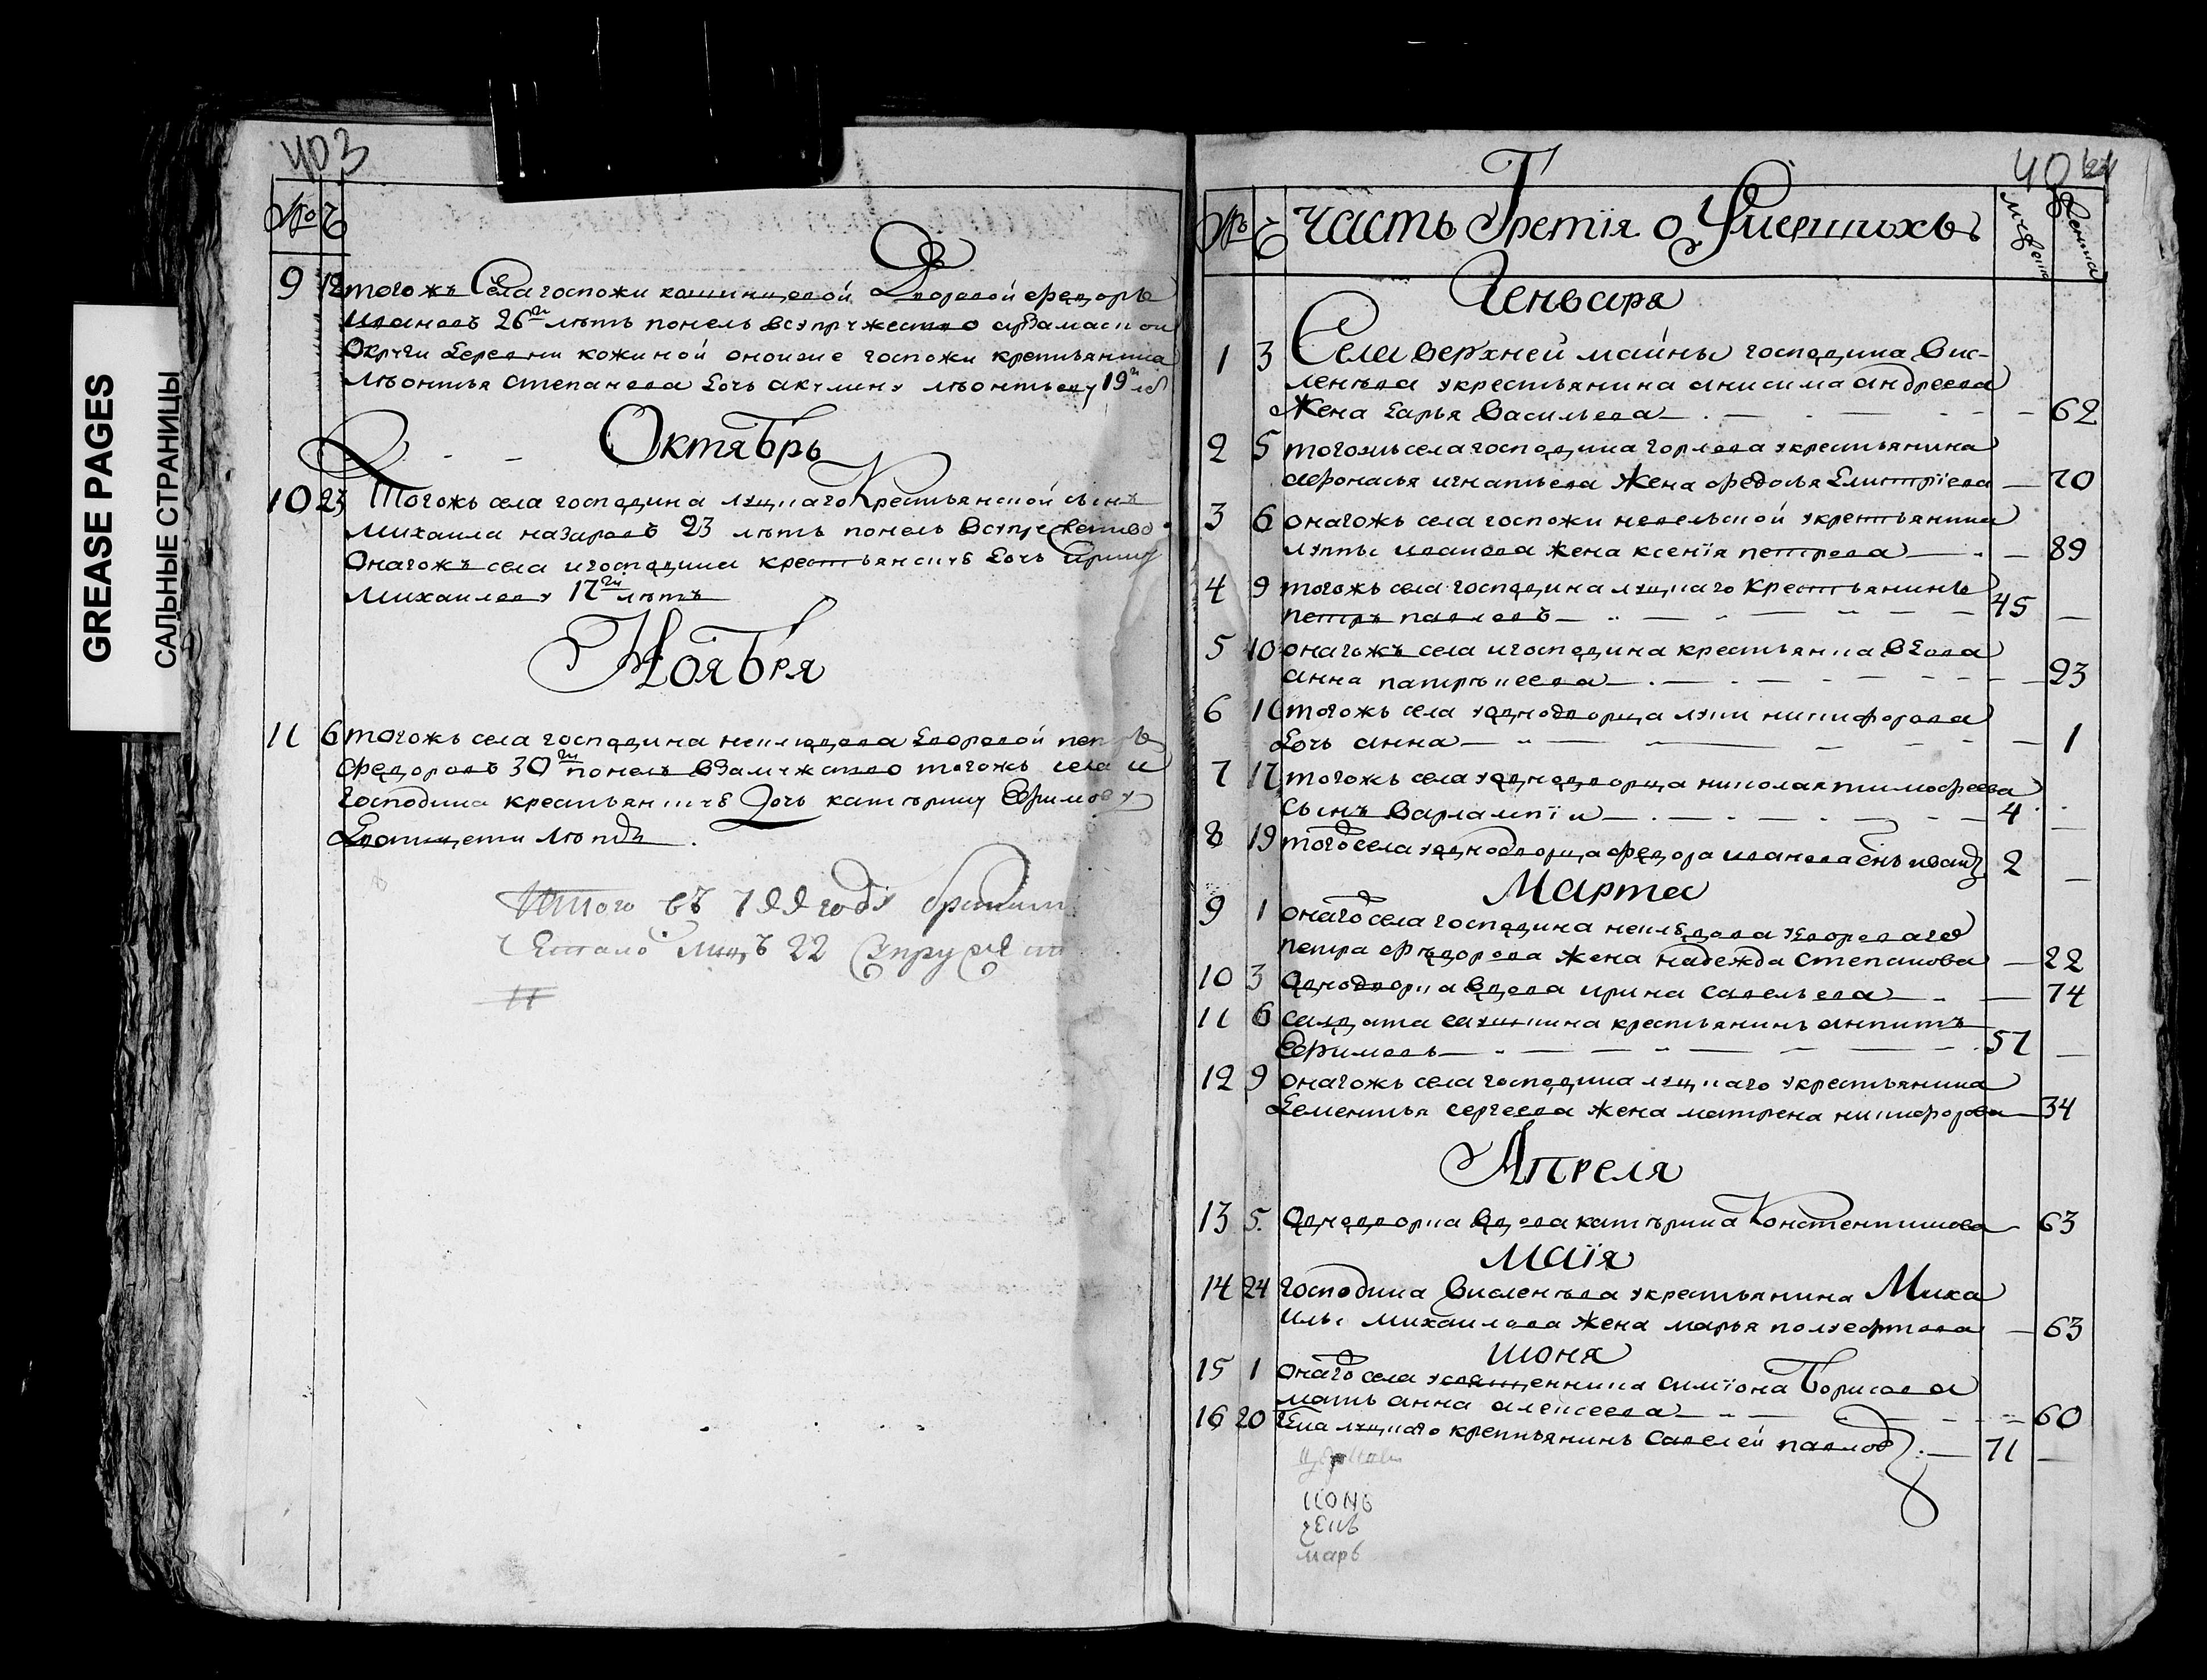 GREASE PAGES
САЛЬНЫЕ СТРАНИЦЫ
403
№
9 12 тогожъ Села госпожи кошинцовой Дворовой федоръ
Ивановъ 26ти лѣтъ понелъ всупружество арзамаской
Округи деревни кожиной оноизже госпожи крестьянина
Лѣонтья степанова дочь акулину лѣонтьеву 19ти
Октябрь
10 23 Тогожъ села господина луцкаго Крестьянской сынъ
михаила назаровъ 23 лѣтъ понелъ Всупружество
Онагожъ села игосподина крестьянина дочь ирину
михаилову 17ти лѣтъ
Ноября
11 6 тогожъ села господина неклюдова дворовой петръ
федоровъ 30ти понелъ взамужство тогожъ села и
господина крестьянина Дочь катѣрину Ефимову
Дватцети лѣтъ.
Итого въ 799 году
лицъ 22
11
404
№
часть Третїя о Умершихъ
мужеска
женска
Геньваря
1 3 Села верхней майны господина Вис-
ленева укрестьянина анисима андреева
Жена дарья Васильева — 62
2 5 тогожъ села господина горлова укрестьянина
афонасья игнатьева Жена федосья дмитрїева — 70
3 6 онагожъ села госпожи невельской укрестьянина
луппы иванова жена ксенїя петрова — 89
4 9 тогожъ села господина луцкаго крестьянинъ
петръ павловъ — 45 —
5 10 онагожъ села игосподина крестьянка вдова
анна патрѣкеева — 93
6 11 тогожъ села уоднодворца луки никифорова
дочь анна — 1
7 17 тогожъ села уоднодворца николая тимофеева
сынъ варлампїи — 4 —
8 19 тогожъ села уоднодворца федора иванова снъ иванъ 2 —
Марта
9 1 онагожъ села господина неклюдова удвороваго
петра фѣдорова жена надежда степанова — 22
10 3 Однодворка вдова ирина савельева — 74
11 6 салдата крестьянинъ анпитъ
Ефимовъ — 57 —
12 9 онагожъ села господина луцкаго укрестьянина
дементья сергеева жена матрена никифорова — 34
Апреля
13 5. Однодворка вдова катѣрина Констентинова — 63
Маїя
14 24 господина Висленева укрестьянина Миха
илы михаилова жена марья полуефтова — 63
июня
15 1 онагожъ села усвященника симїона Борисова
мать анна алексеева — 60
16 20 Гдна луцкаго крестьянинъ савелей павловъ. — 71 —
июнь
марь